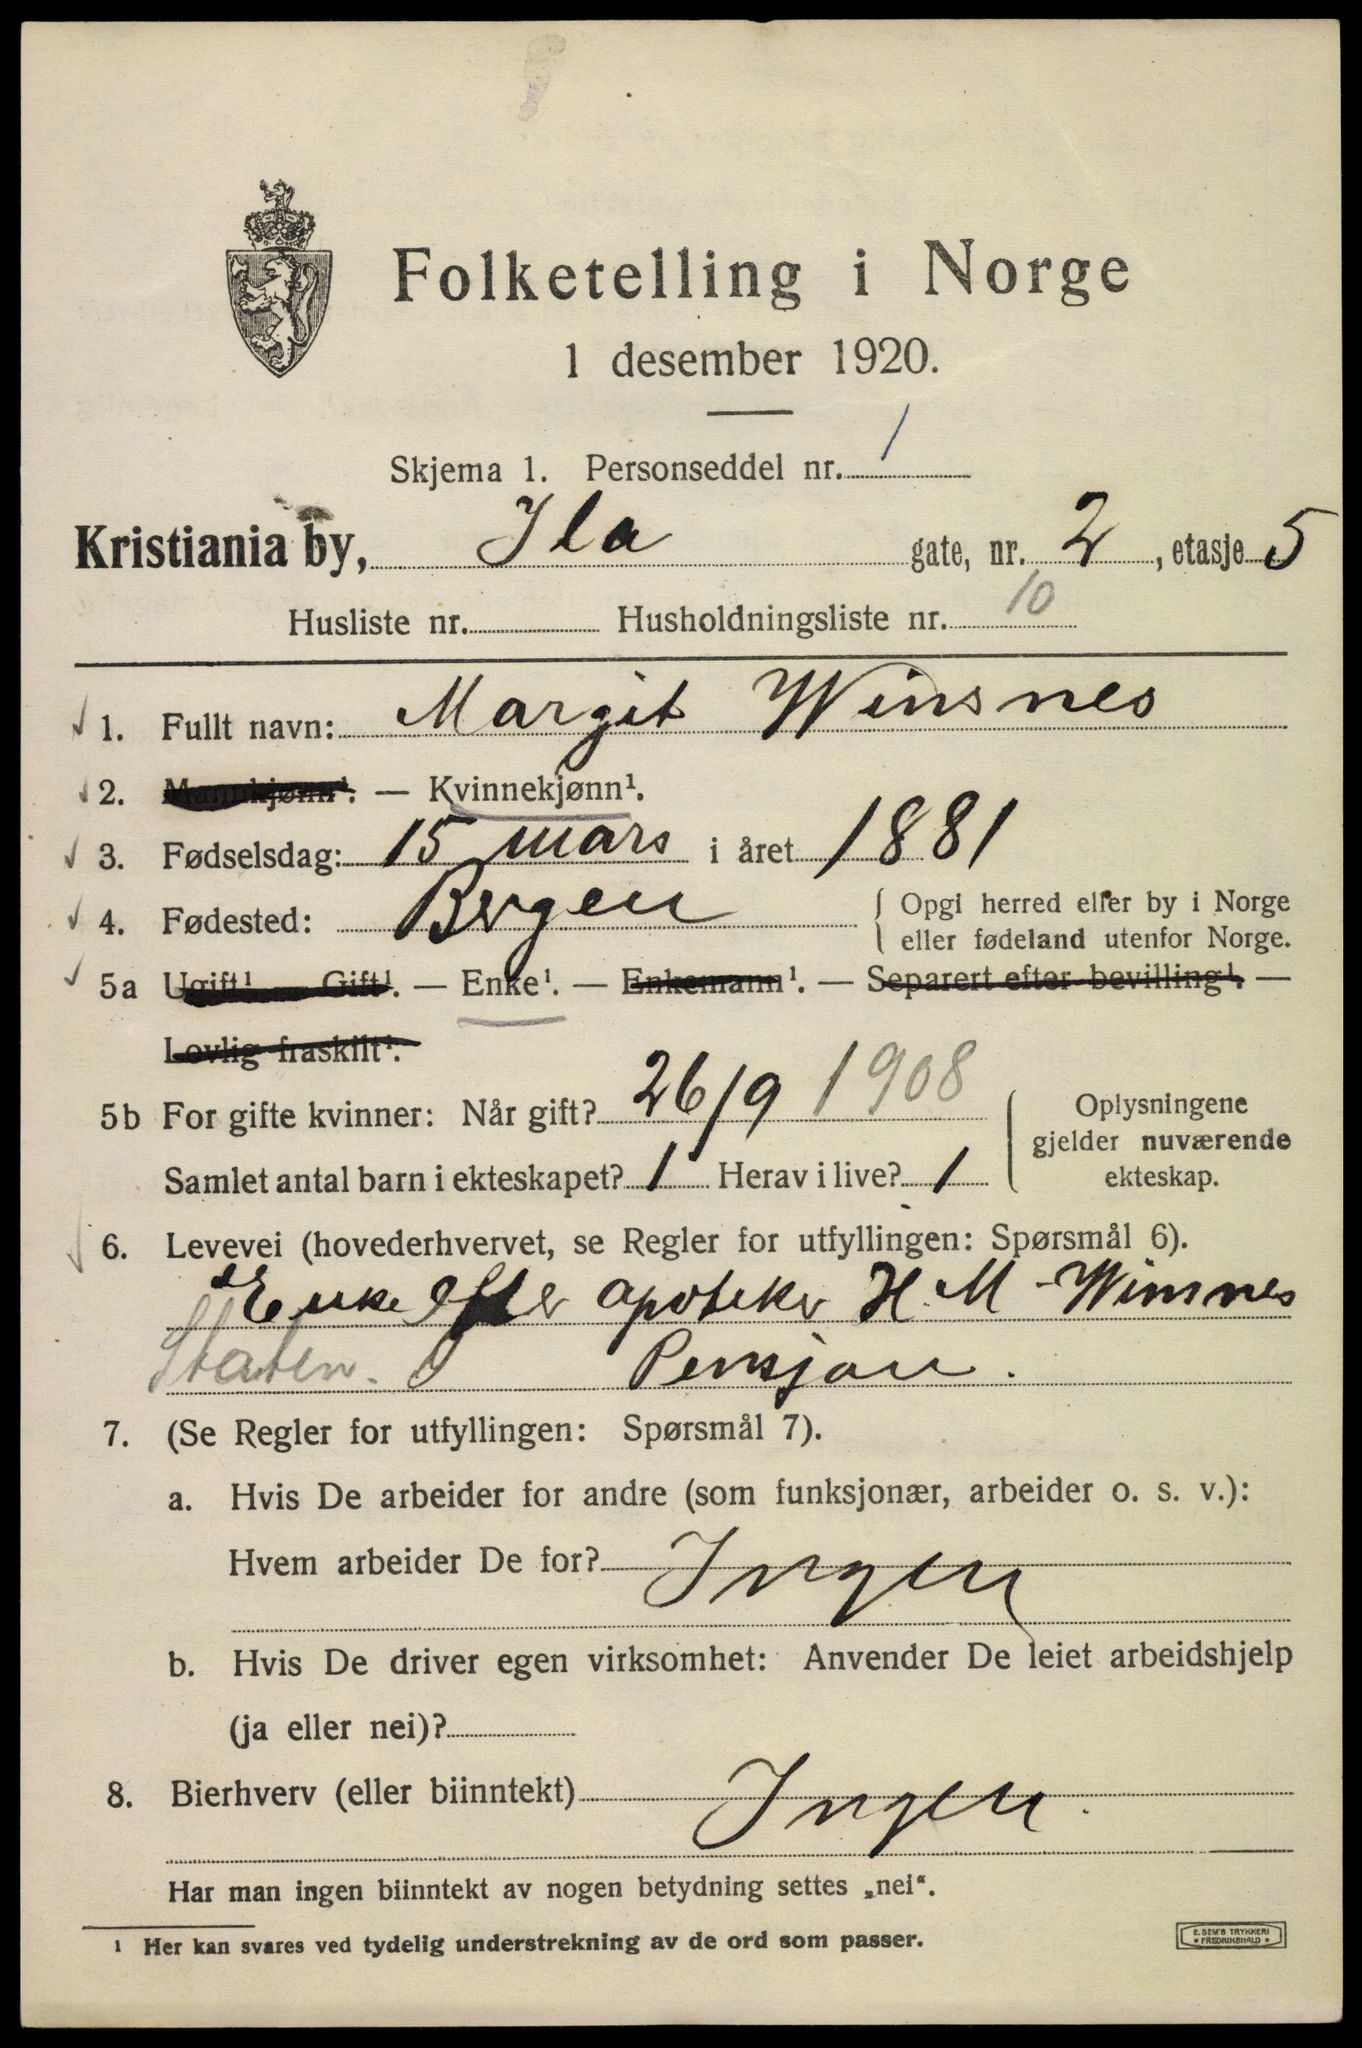 Folketelling i Norge
1 desember 1920.
Skjema 1. Personseddel nr. 1
Kristiania by, Ila gate, nr. 2, etasje 5
Husliste nr. Husholdningsliste nr. 10
1. Fullt navn: Margit Winsnes
2. Mannkjønn¹. — Kvinnekjønn¹.
3. Fødselsdag: 15 mars i året 1881
4. Fødested: Bergen { Opgi herred eller by i Norge
eller fødeland utenfor Norge.
5a Ugift¹. — Gift¹. — Enke¹. — Enkemann¹. — Separert efter bevilling¹. —
Lovlig fraskilt¹.
5b For gifte kvinner: Når gift? 26/9 1908
Samlet antal barn i ekteskapet? 1 Herav i live? 1
{ Oplysningene
gjelder nuværende
ekteskap.
6. Levevei (hovederhvervet, se Regler for utfyllingen: Spørsmål 6).
Enke efter apoteker H. M. Winsnes
Staten. Pensjon.
7. (Se Regler for utfyllingen: Spørsmål 7).
a. Hvis De arbeider for andre (som funksjonær, arbeider o. s. v.):
Hvem arbeider De for? Ingen
b. Hvis De driver egen virksomhet: Anvender De leiet arbeidshjelp
(ja eller nei)?
8. Bierhverv (eller biinntekt) Ingen.
Har man ingen biinntekt av nogen betydning settes „nei“.
¹ Her kan svares ved tydelig understrekning av de ord som passer.
E. SEM'S TRYKKERI
• FREDRIKSHALD •